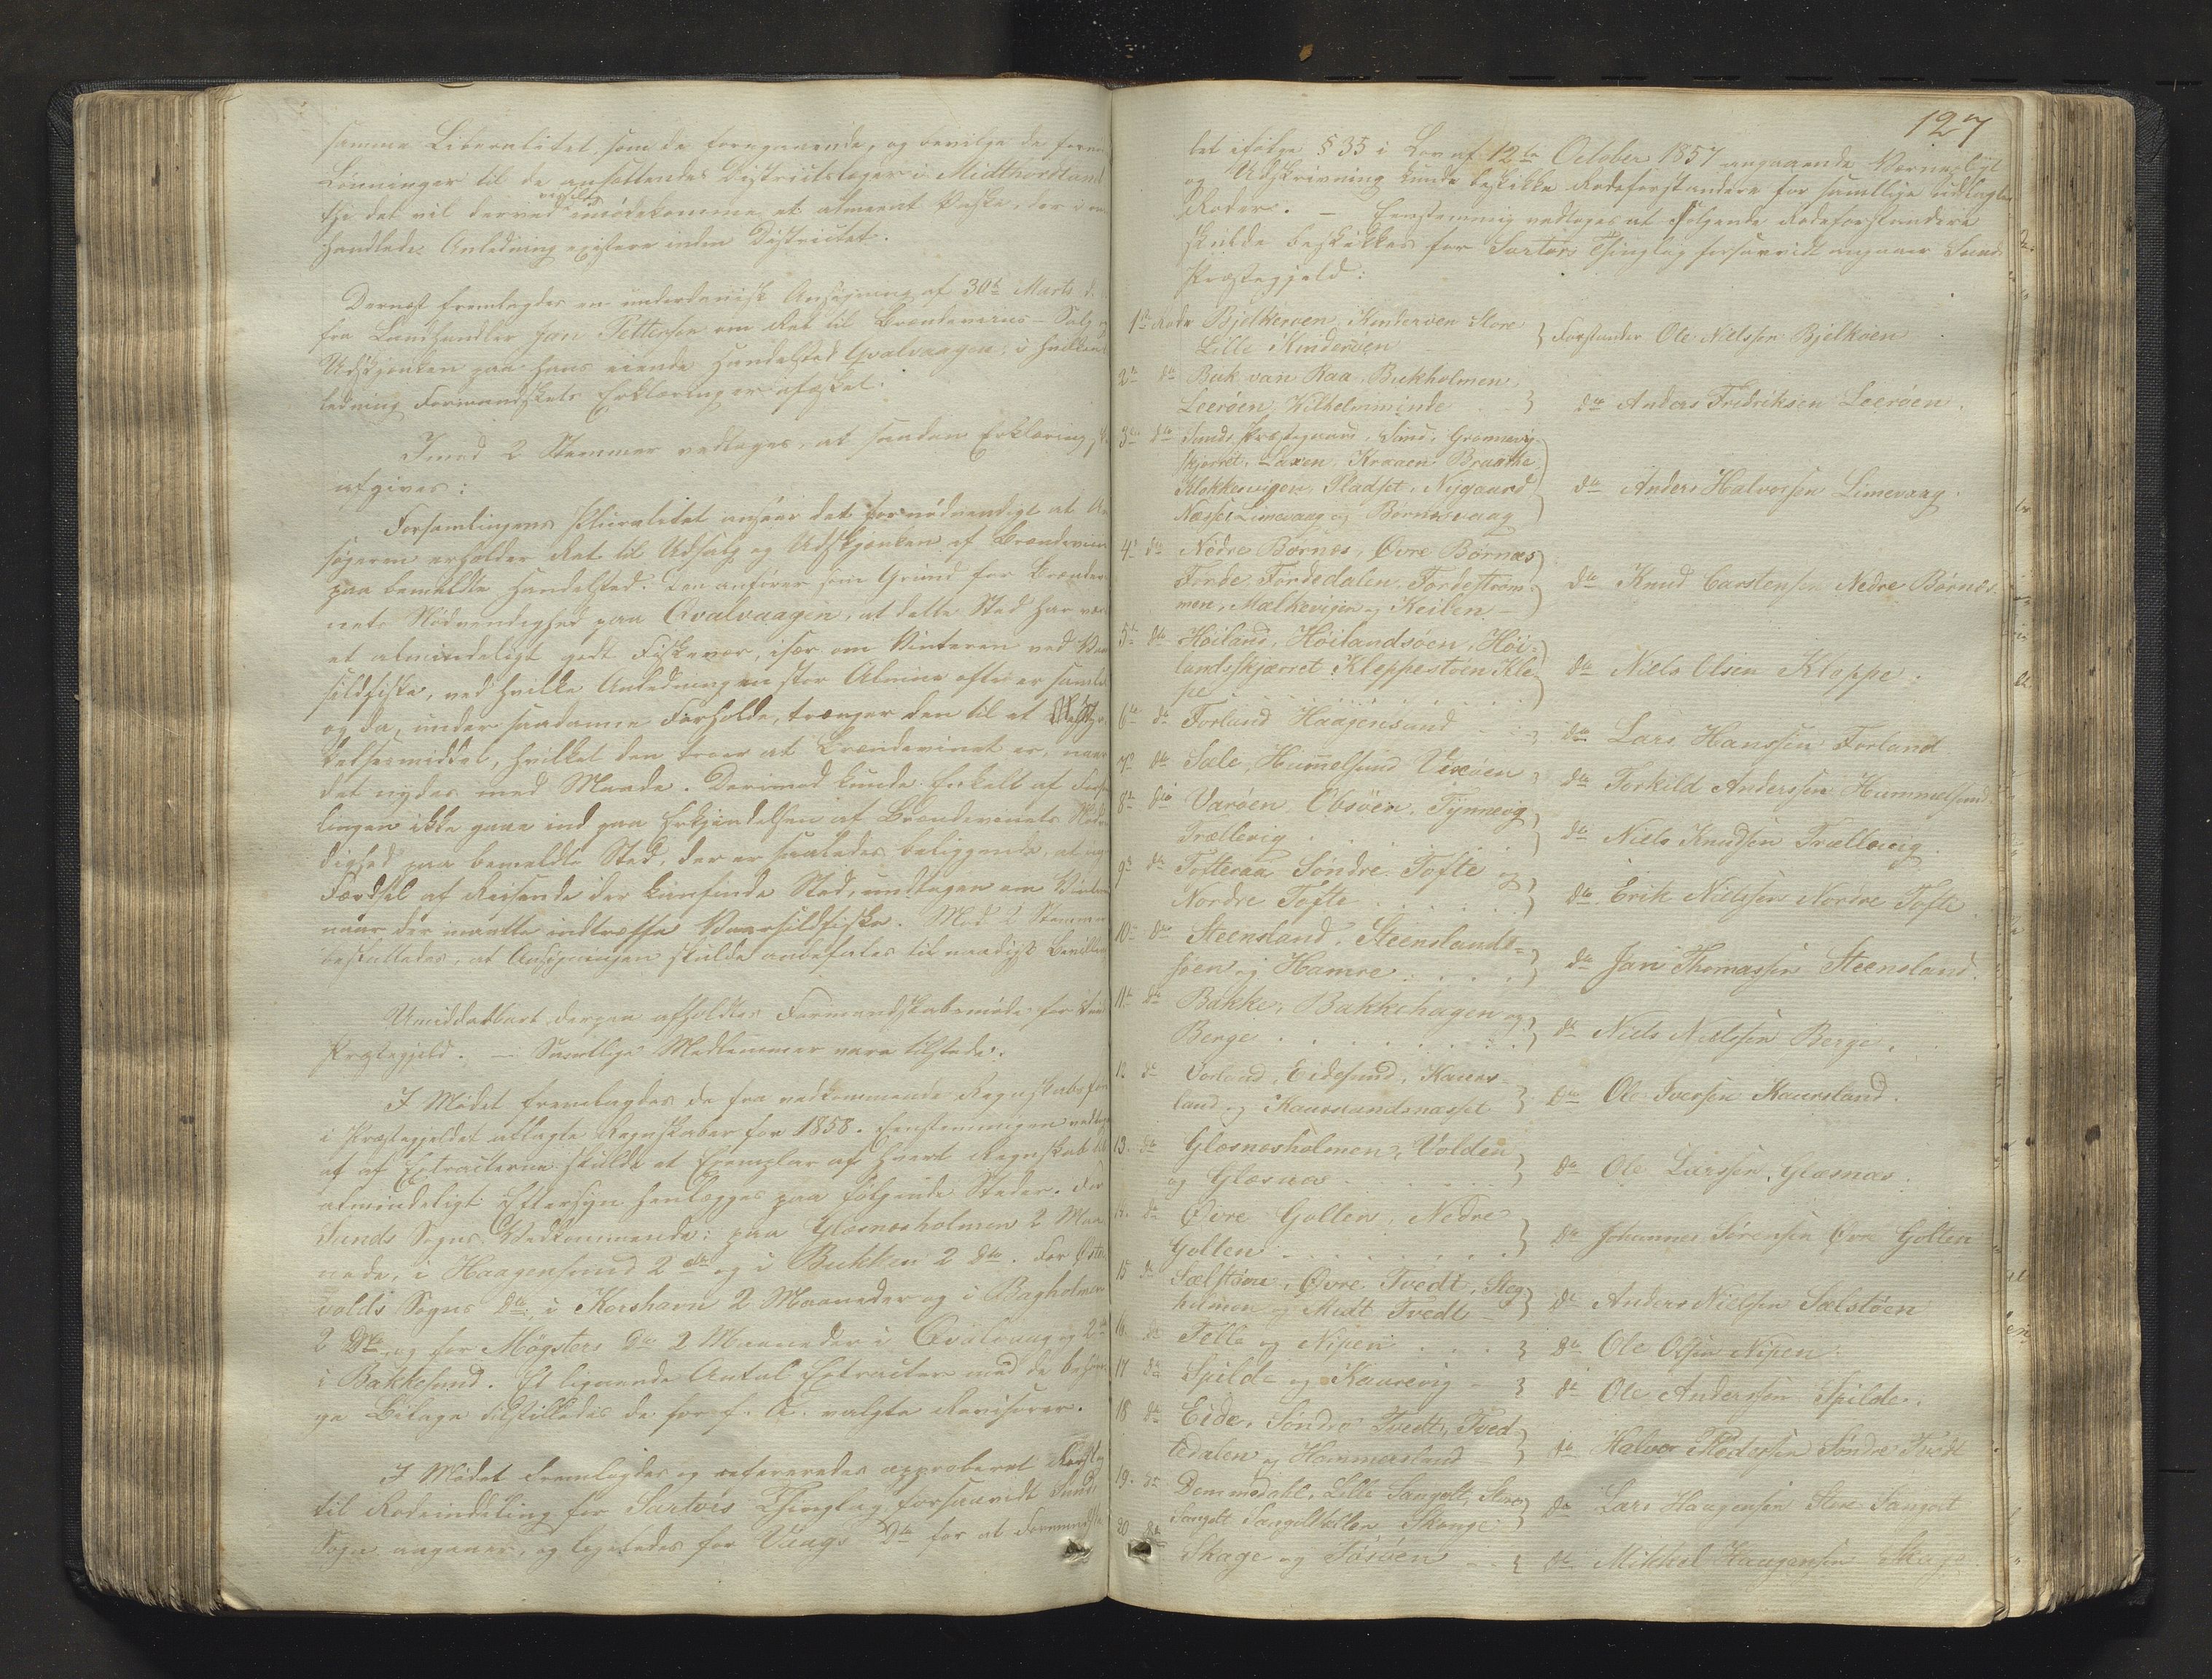 samme Liberalitet, som de foregaaende, og bevilge de forna
Lønninger til de ansættendes Districtslæger i Midthordland
thi det vil derved vistnok imødekomme et almeent Ønske, der i om
handlede Anledning existere inden Districtet.
Dernæst fremlagdes en underdanigst Ansøgning af 30te Marts d.
fra Landhandler Jan Pettersen om Ret til Brændeviins-Salg og
Udskjænken paa hans eiende Handelsted Qvalvaagen, i hvilken
ledning Formandskabets Erklæring er afæsket.
Imod 2 Stemmer vedtoges, at saadan Erklæring
afgives:
Forsamlingens Pluralitet anseer det fornødvendigt at An
søgeren erholder Ret til Udsalg og Udskjænken af Brændeviin
paa bemældte Handelsted. Den anfører som Grund for Brændevi
nets Nødvendighed paa Qvalvaagen, at dette Sted har været
et almindeligt godt Fiskevær, især om Vinteren ved Vaar
sildfiske, ved hvilke Anledning en stor Almue ofte er samlet
og da, under saadanne Forholde, trænger den til et
kelsesmiddel, hvilket den troer at Brændevinet er, naar
det nydes med Maade. Derimod kunde Enkelt af Forsam
lingen ikke gaae ind paa Erkjendelsen af Brændevinets Nødven
dighed paa bemældte Sted, der er saaledes beliggende, at ingen
Færdsel af Reisende der kan finde Sted, undtagen om Vinteren
naar der maatte indtræffe Vaarsildfiske. Mod 2 Stemmer
besluttedes, at Ansøgningen skulde anbefales til naadigst Bevilling
Umiddelbart derpaa afholdtes Formandskabsmøde for Sund
Præstegjeld. — Samtlige Medlemmer vare tilstede.
I Mødet fremlagdes de fra vedkommende Regnskabsfør
i Præstegjeldet aflagte Regnskaber for 1858. Eenstemmigen vedtoges
at af Extracterne skulde et Exemplar af hvert Regnskab til
almindeligt Eftersyn henlægges paa følgende Steder. For
Sunds Sogns Vedkommende: paa Glæsnæsholmen 2 Maa
neder, i Haagensund 2 do og i Bukken 2 do. For Øste
volds Sogns do: i Korshavn 2 Maaneder og i Bagholmen
2 do og for Møgsters do 2 Maaneder i Qvalvaag og 2 do
i Bakkesund. Et lignende Antal Extracter med de behøri
ge Bilage tilstilledes de for f. A. valgte Revisorer.
I Mødet fremlagdes og refereredes approberet Forslag
til Rodeinddeling for Sartors Thinglag forsaavidt Sunds
Sogn angaaer, og ligeledes for Vaags do for at Formandska
127
bet ifølge § 35 i Lov af 12te October 1857 angaaende Værnepligt
og Udskrivning kunde beskikke Rodeforstandere for samtlige udlagte
Roder. — Eenstemmig vedtoges at følgende Rodeforstandere
skulde beskikkes for Sartors Thinglag forsaavidt angaaer Sunds
Præstegjeld:
1ste Rode Bjelkeroen, Kinderøen Store
Lille Kinderøen } Forstander Ole Nielssen Bjelkøen
2den do Buk van Raa, Bukholmen,
Leerøen, Wilhelmminde } do Anders Fredriksen Leerøen.
3die do Sunds Præstegaard, Sund, Grønnevig
skjæret, Laxen, Kraaen Braathe
Klokkervigen, Pladset, Nygaard
Næsset Limevaag og Børnesvaag } do Anders Halvorsen Limevaag.
4de do Nedre Børnes, Øvre Børnæs
Førde Førdedalen, Førdestrøm-
men, Mælkevigen og Keilen } do Knud Carstensen Nedre Børnæs.
5te do Høiland, Høilandsøen, Høi-
landsskjærret Kleppestøen Klep
pe } do Niels Olsen Kleppe.
6te do Forland Haagensund } do Lars Hanssen Forland
7de do Sæle, Hummelsund Vixøen } do Torkild Anderssen Hummelsund
8de do Varøen Obsøen, Tynnevig
Trællevig } do Niels Knudsen Trællevig.
9de do Tofteraa Søndre Tofte og
Nordre Tofte } do Erik Nielssen Nordre Tofte
10de do Steensland, Steenslands-
søen og Hamre } do Jan Thomassen Steensland.
11te do Bakke, Bakkehagen og
Berge } do Niels Nielssen Berge.
12. do Vorland, Eidesund, Kaurs-
land og Kaurslandsnæsset } do Ole Iversen Kaursland.
13. do Glæsnæsholmen, Volden
og Glæsnæs } do Ole Larssen, Glæsnæs.
14. do Øvre Golten, Nedre
Golten } do Johannes Sørensen Øvre Golten
15 do Sælstøen, Øvre Tvedt, Steg
holmen og Midt Tvedt } do Anders Nielsen Sælstøen
16 do Telle og Nipen } do Ole Olsen Nipen
17 do Spilde og Kaurevig } do Ole Anderssen Spilde.
18 do Eide, Søndre Tvedt, Tved-
tedalen og Hammersland } do Halvor Pedersen Søndre Tvedt
19. do Demmedahl, Lille Sangolt, Store
Sangolt Sangoltkollen Skonge } do Lars Haagensen Store Sangolt
20 do Skage og Tøsøen } do Mikkel Haagensen Skage